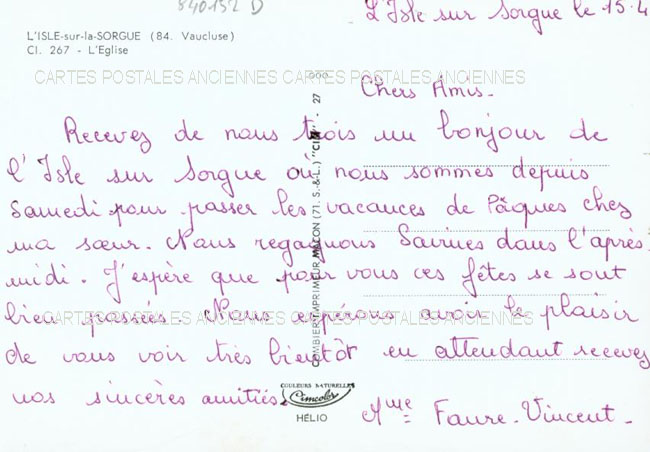 840152 D
L'Isle sur Sorgue le 15.4
L'ISLE-sur-la-SORGUE (84. Vaucluse)
CI. 267 - L'Eglise
CARTES POSTALES ANCIENNES CARTES POSTALES ANCIENNES
Chers Amis.
Recevez de nous trois un bonjour de
l'Isle sur Sorgue où nous sommes depuis
Samedi pour passer les vacances de Pâques chez
ma sœur. Nous regagnons Savines dans l'après
midi. J'espère que pour vous ces fêtes se sont
bien passées. Nous espérons avoir le plaisir
CARTES POSTALES ANCIENNES CARTES POSTALES ANCIENNES
de vous voir très bientôt en attendant recevez
nos sincères amitiés.
Mme Faure-Vincent.
COMBIER IMPRIMEUR MACON (71. S.-&-L.) "CIM" - 27
COULEURS NATURELLES
Cimcolor
HÉLIO